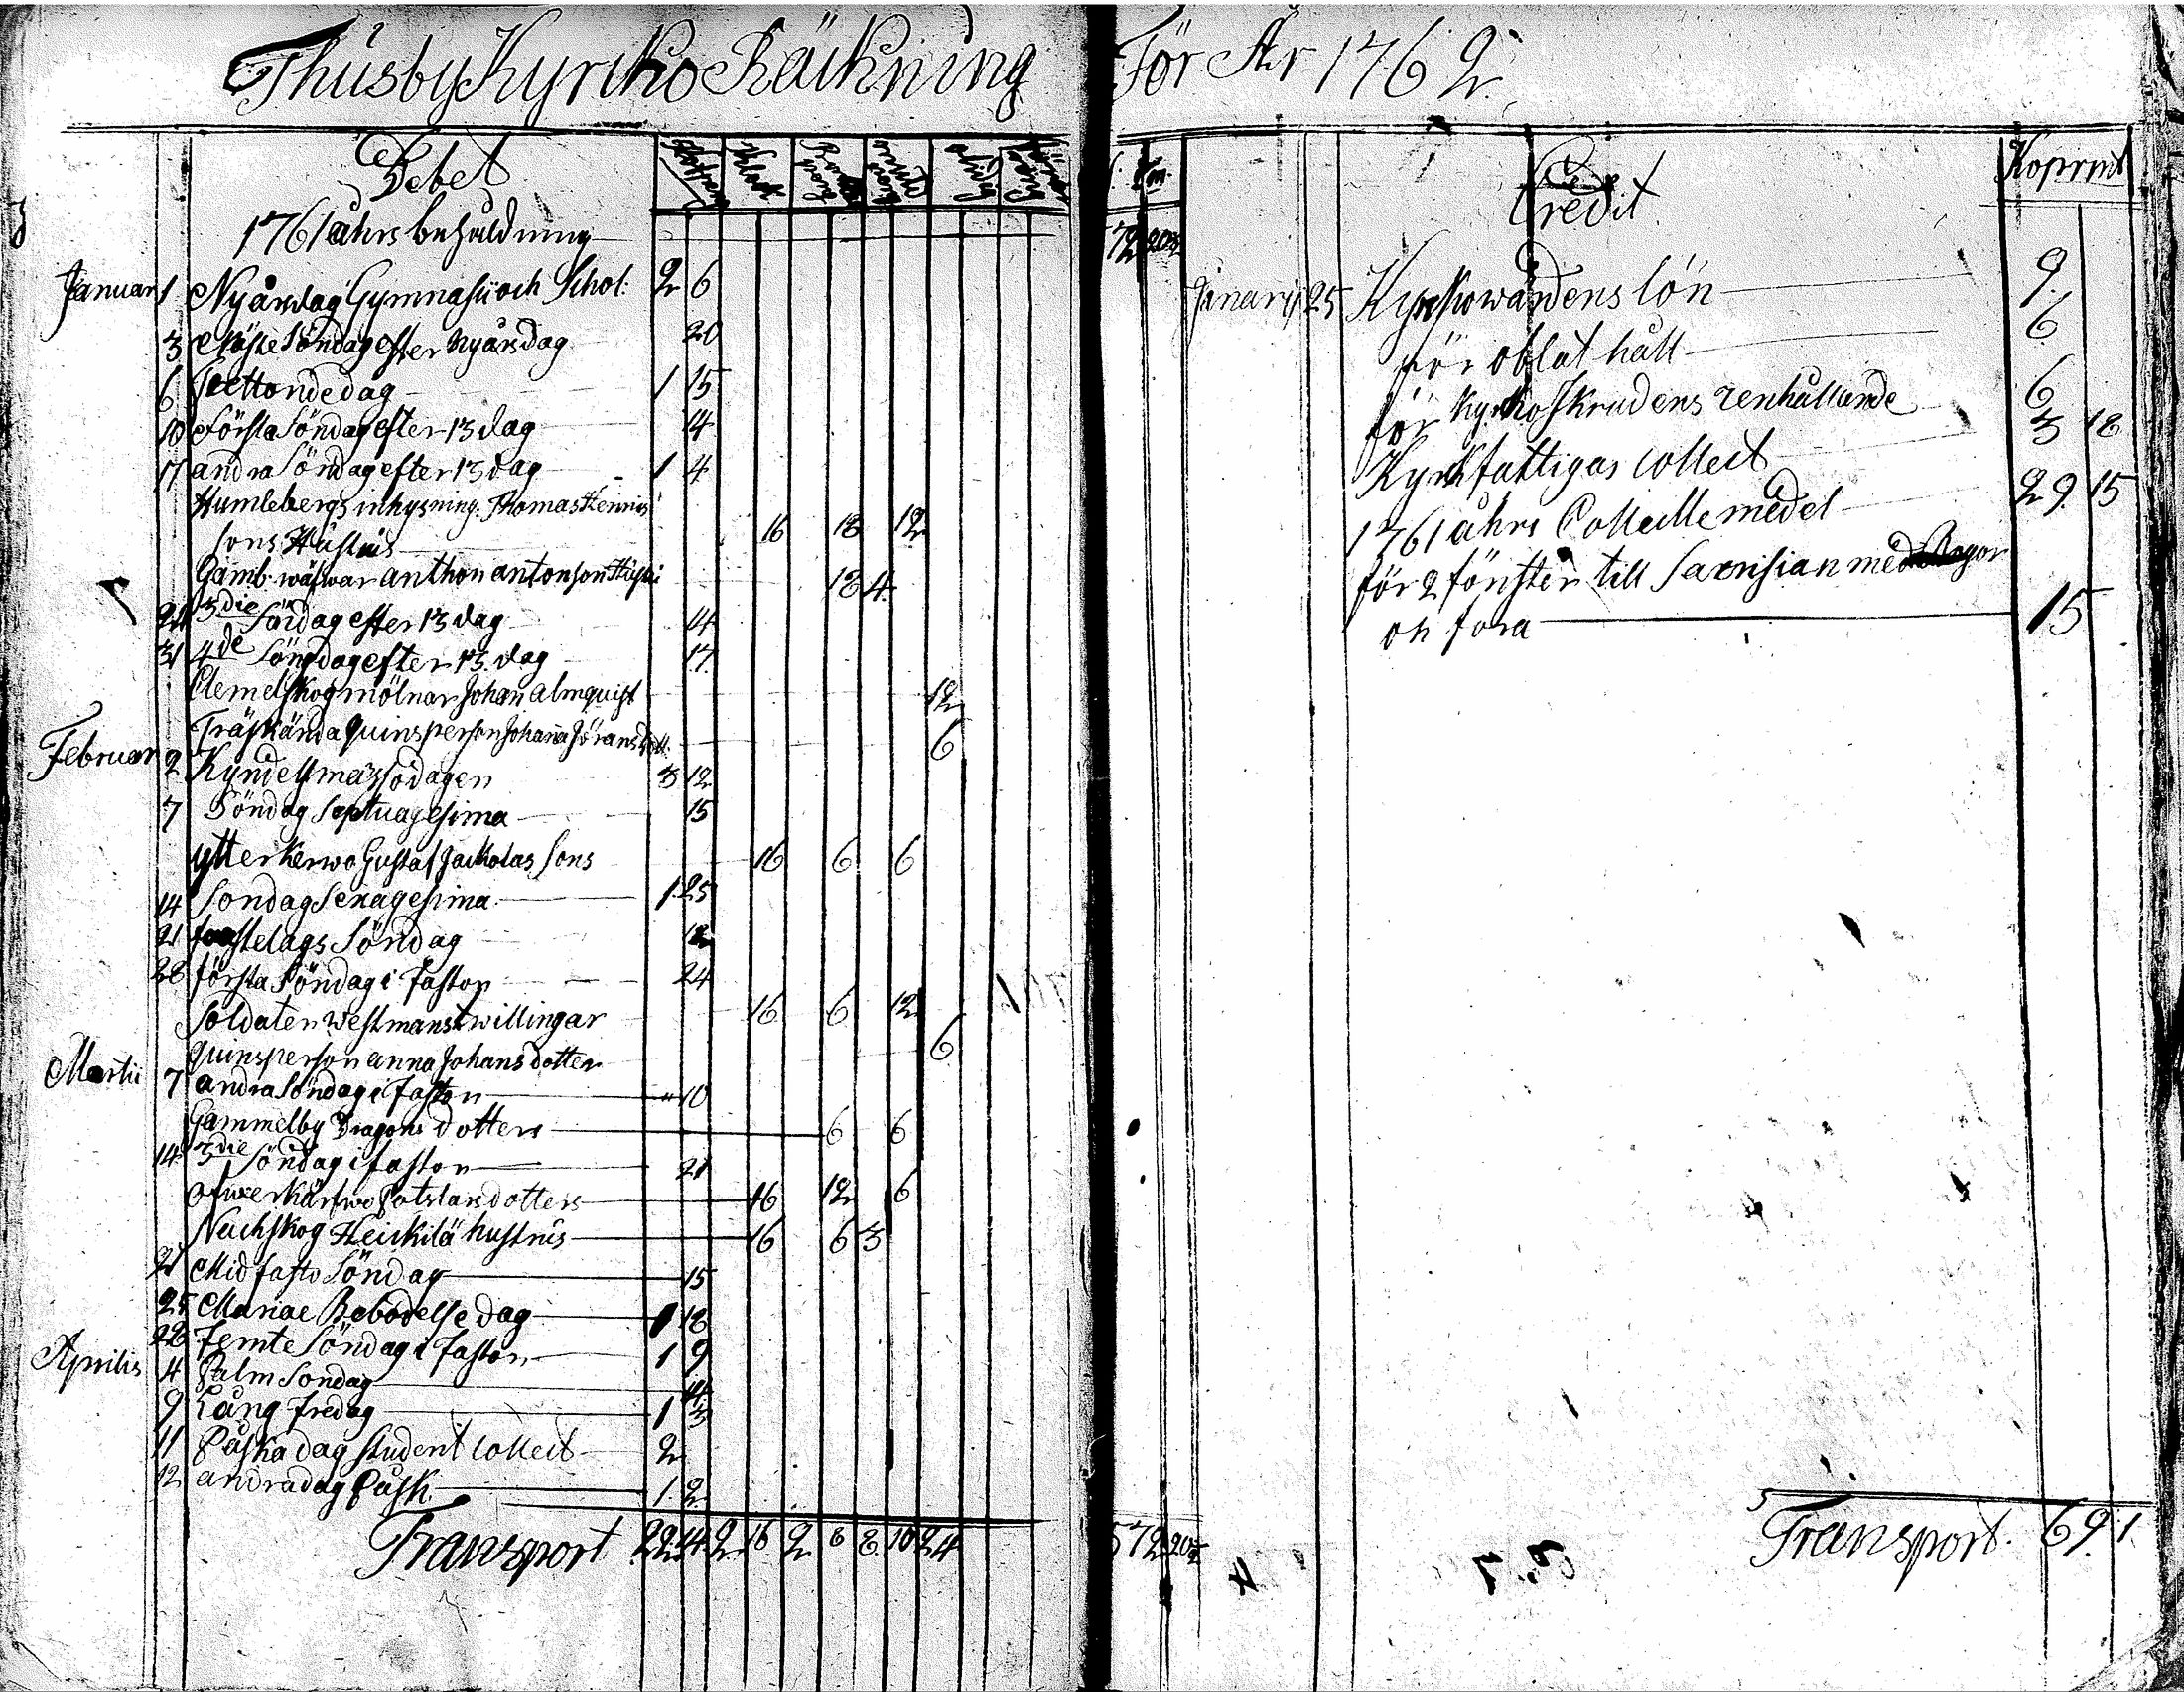 Thusby Kyrcko Räickning För År 1762.
Debet
1761 ährs behåldning 572 20
Januar 1 Nyårsdag Gymnasii och Schol: 2 6
3 Näste Söndag efter Nyårsdag 20
6 Trettonde dag 1 15
10 Första Söndag efter 13 dag 14
17 andra Söndag efter 13 dag 1 4
Humlebergs inhysning. Thomas Hennris
sons Hustrus 16 18 12
Gamb: wäfwar anthon antonson Hustru 18 4
24 3die Söndag efter 13 dag 14
31 4de Söngdag efter 13 dag 17
Clemetskog mölnar Johan almquist 12
Träskända quinsperson Johana Jöransdott. 6
Februar 2 Kyndellmässodagen 3 12
7 Söndag Septuagesima 15
ytterkerwo Gustaf Jackolas Sons 16 6 6
14 Sondag Sexagesima 1 25
21 fastelags Söndag 12
28 första Söndag i faston 24
Soldaten Westmans twillingar 16 6 12
quinsperson anna Johans dotter 6
Martii 7 andra Söndag i faston " 10
Gammelby Dragons dotters 6 6
14 3die Söndag i faston 21
ofwerkärfwo Potslars dotters 16 12 6
Nachskog Heickilä hustrus 16 6 3
21 Midfasto Söndag 15
25 Mariae Bebodelse dag 1 18
28 Femte Söndag i faston 1 9
Aprilis 4 Palm Sondag 14
9 Lång fredag 1 3
11 Påska dag student Collect 2
12 andra dag Påsk. 1 2
Transport 22 14 2 16 2 6 8 10 24 572 20
Credit
Koprmt
Januarij 25 Kyrkiowärdens lön 9
för oblat håll 6
för kyrkoskrudens renhållande 6
Kyrckfattigas Collect 3 18
1761 ährs Collectte medel 29 15
för 2 fönster till Sacrisian med Bogor
och fora 15
Transport. 69. 1.